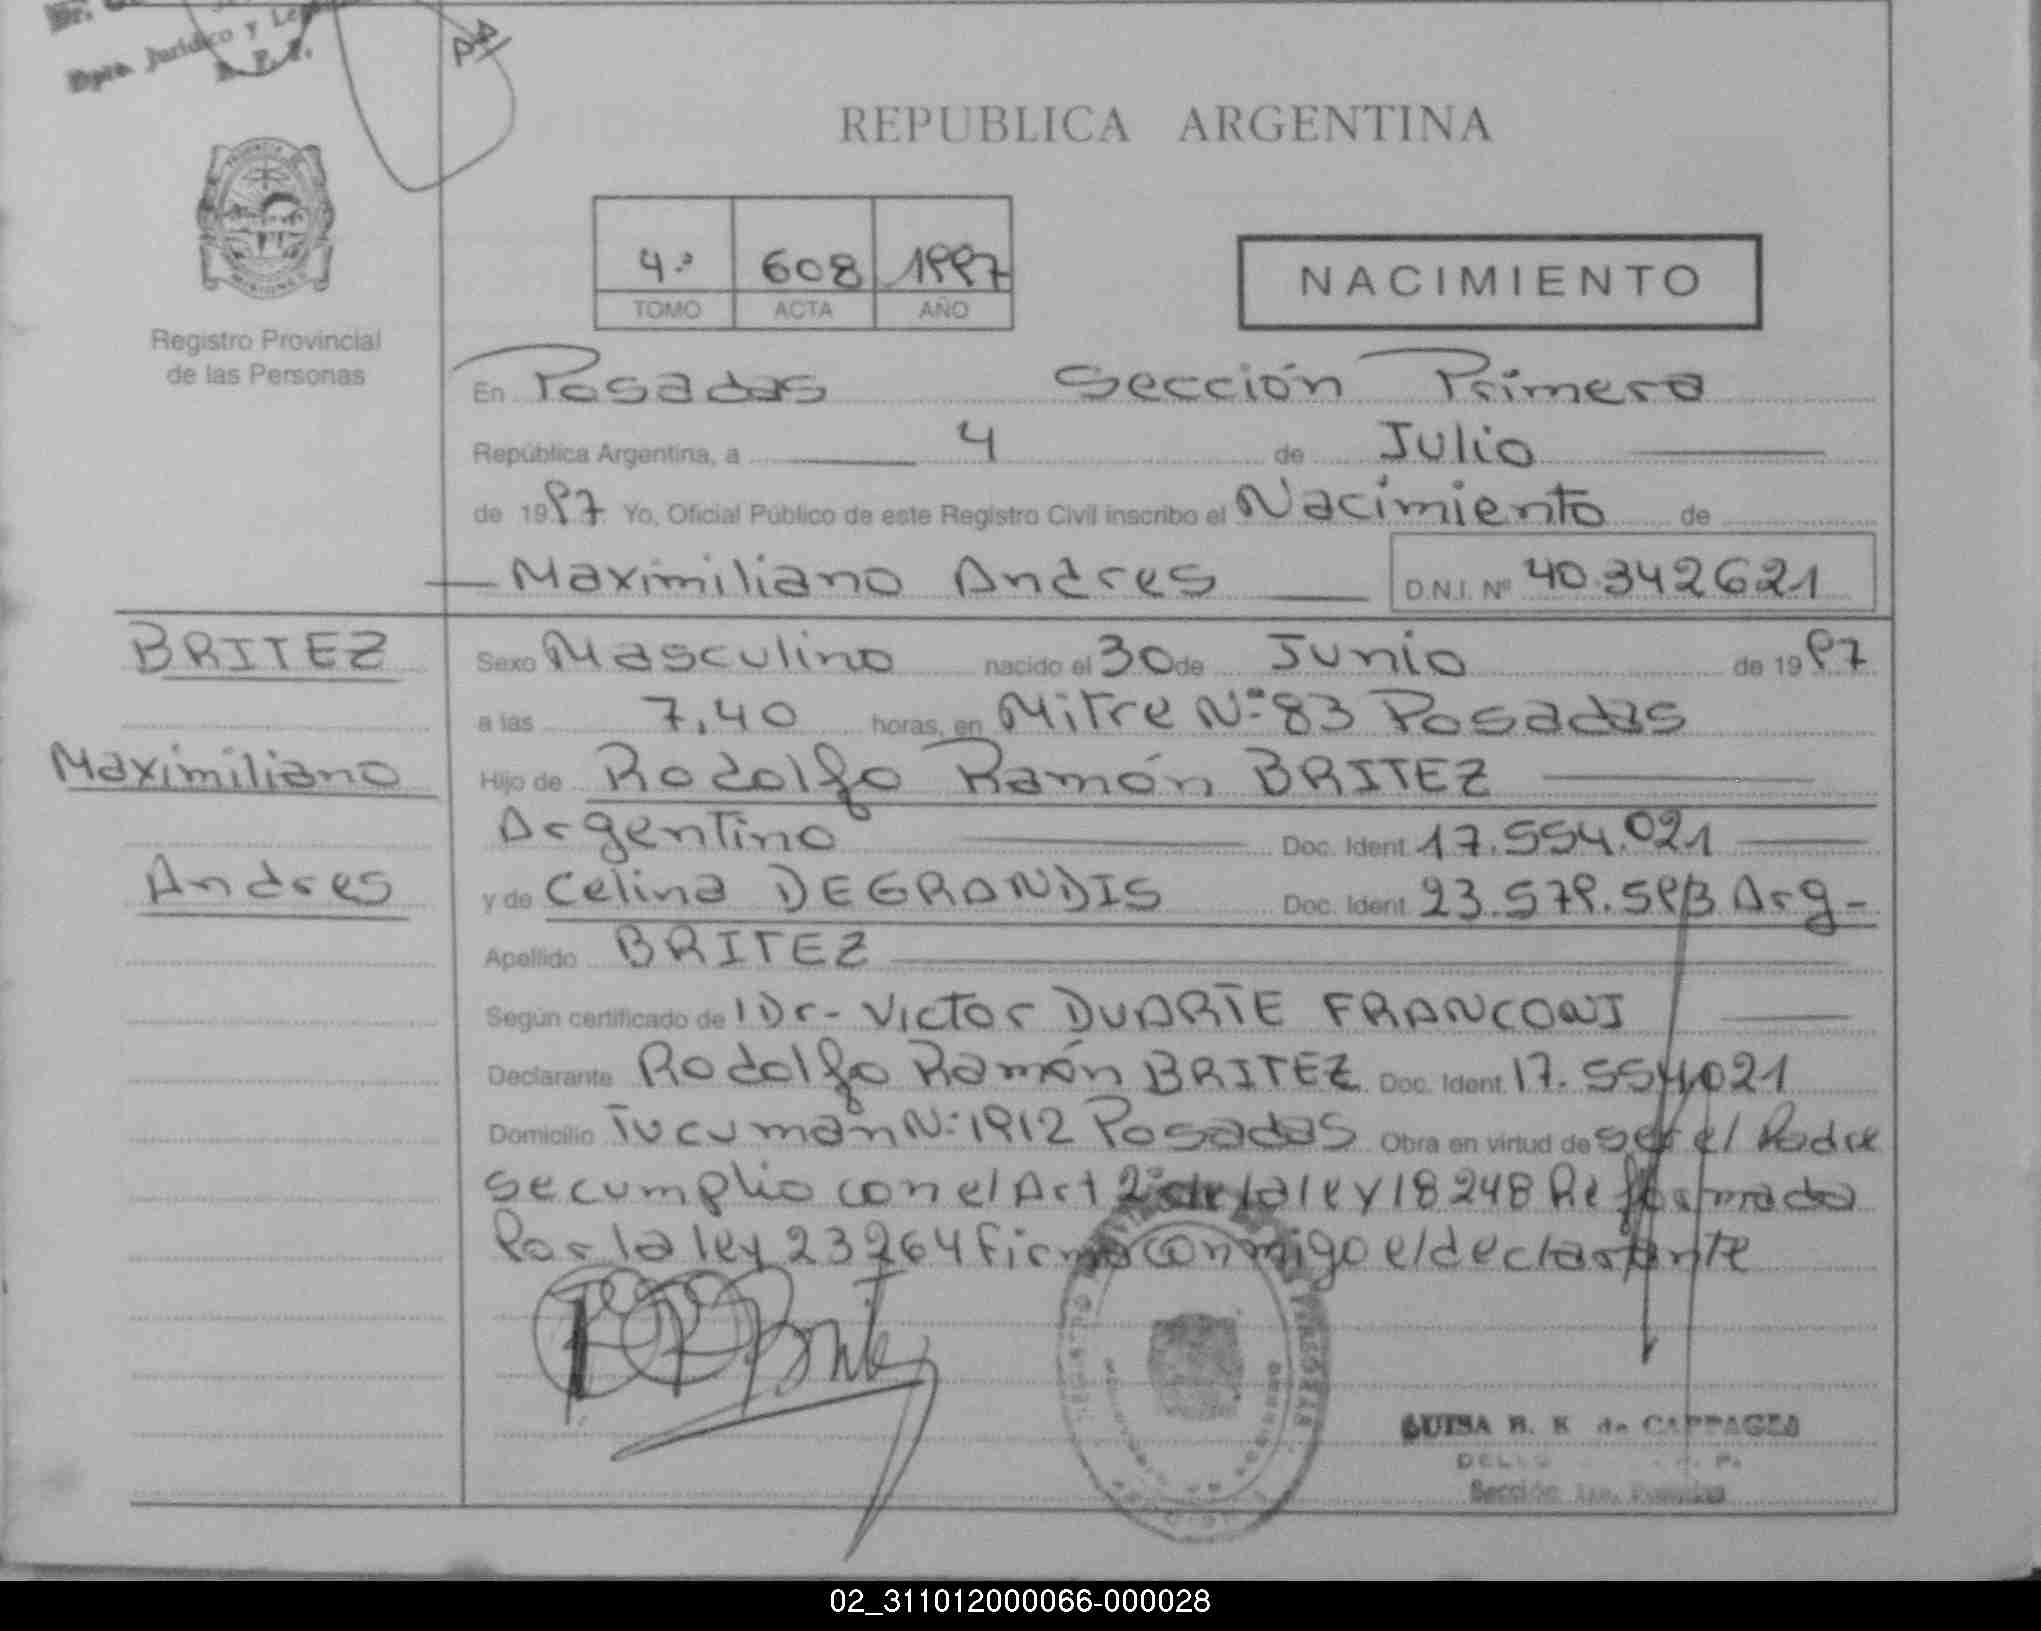 Dpto. Jurídico y
REPUBLICA ARGENTINA
4º 608 1997
TOMO ACTA AÑO
NACIMIENTO
Registro Provincial
de las Personas
En Posadas Sección Primera
República Argentina, a 4 de Julio
de 1997 Yo, Oficial Público de este Registro Civil inscribo el Nacimiento de
Maximiliano Andres D.N.I. Nº 40.342621
BRITEZ
Maximiliano
Andres
Sexo Masculino nacido el 30 de Junio de 1997
a las 7,40 horas, en Mitre Nº 83 Posadas
Hijo de Rodolfo Ramón BRITEZ
Argentino Doc. Ident. 17.554.021
y de Celina DEGRANDIS Doc. Ident. 23.579.593 Arg-
Apellido BRITEZ
Según certificado de Dr- Victor DUARTE FRANCONI
Declarante Rodolfo Ramón BRITEZ Doc. Ident. 17.554021
Domicilio Tucumán Nº 1912 Posadas Obra en virtud de ser el Padre
se cumplio con el Art 2º de la ley 18248 Reformada
Por la ley 23264 firma conmigo el declarante
LUISA B. K de
Sección 1ra. Posadas
02_311012000066-000028